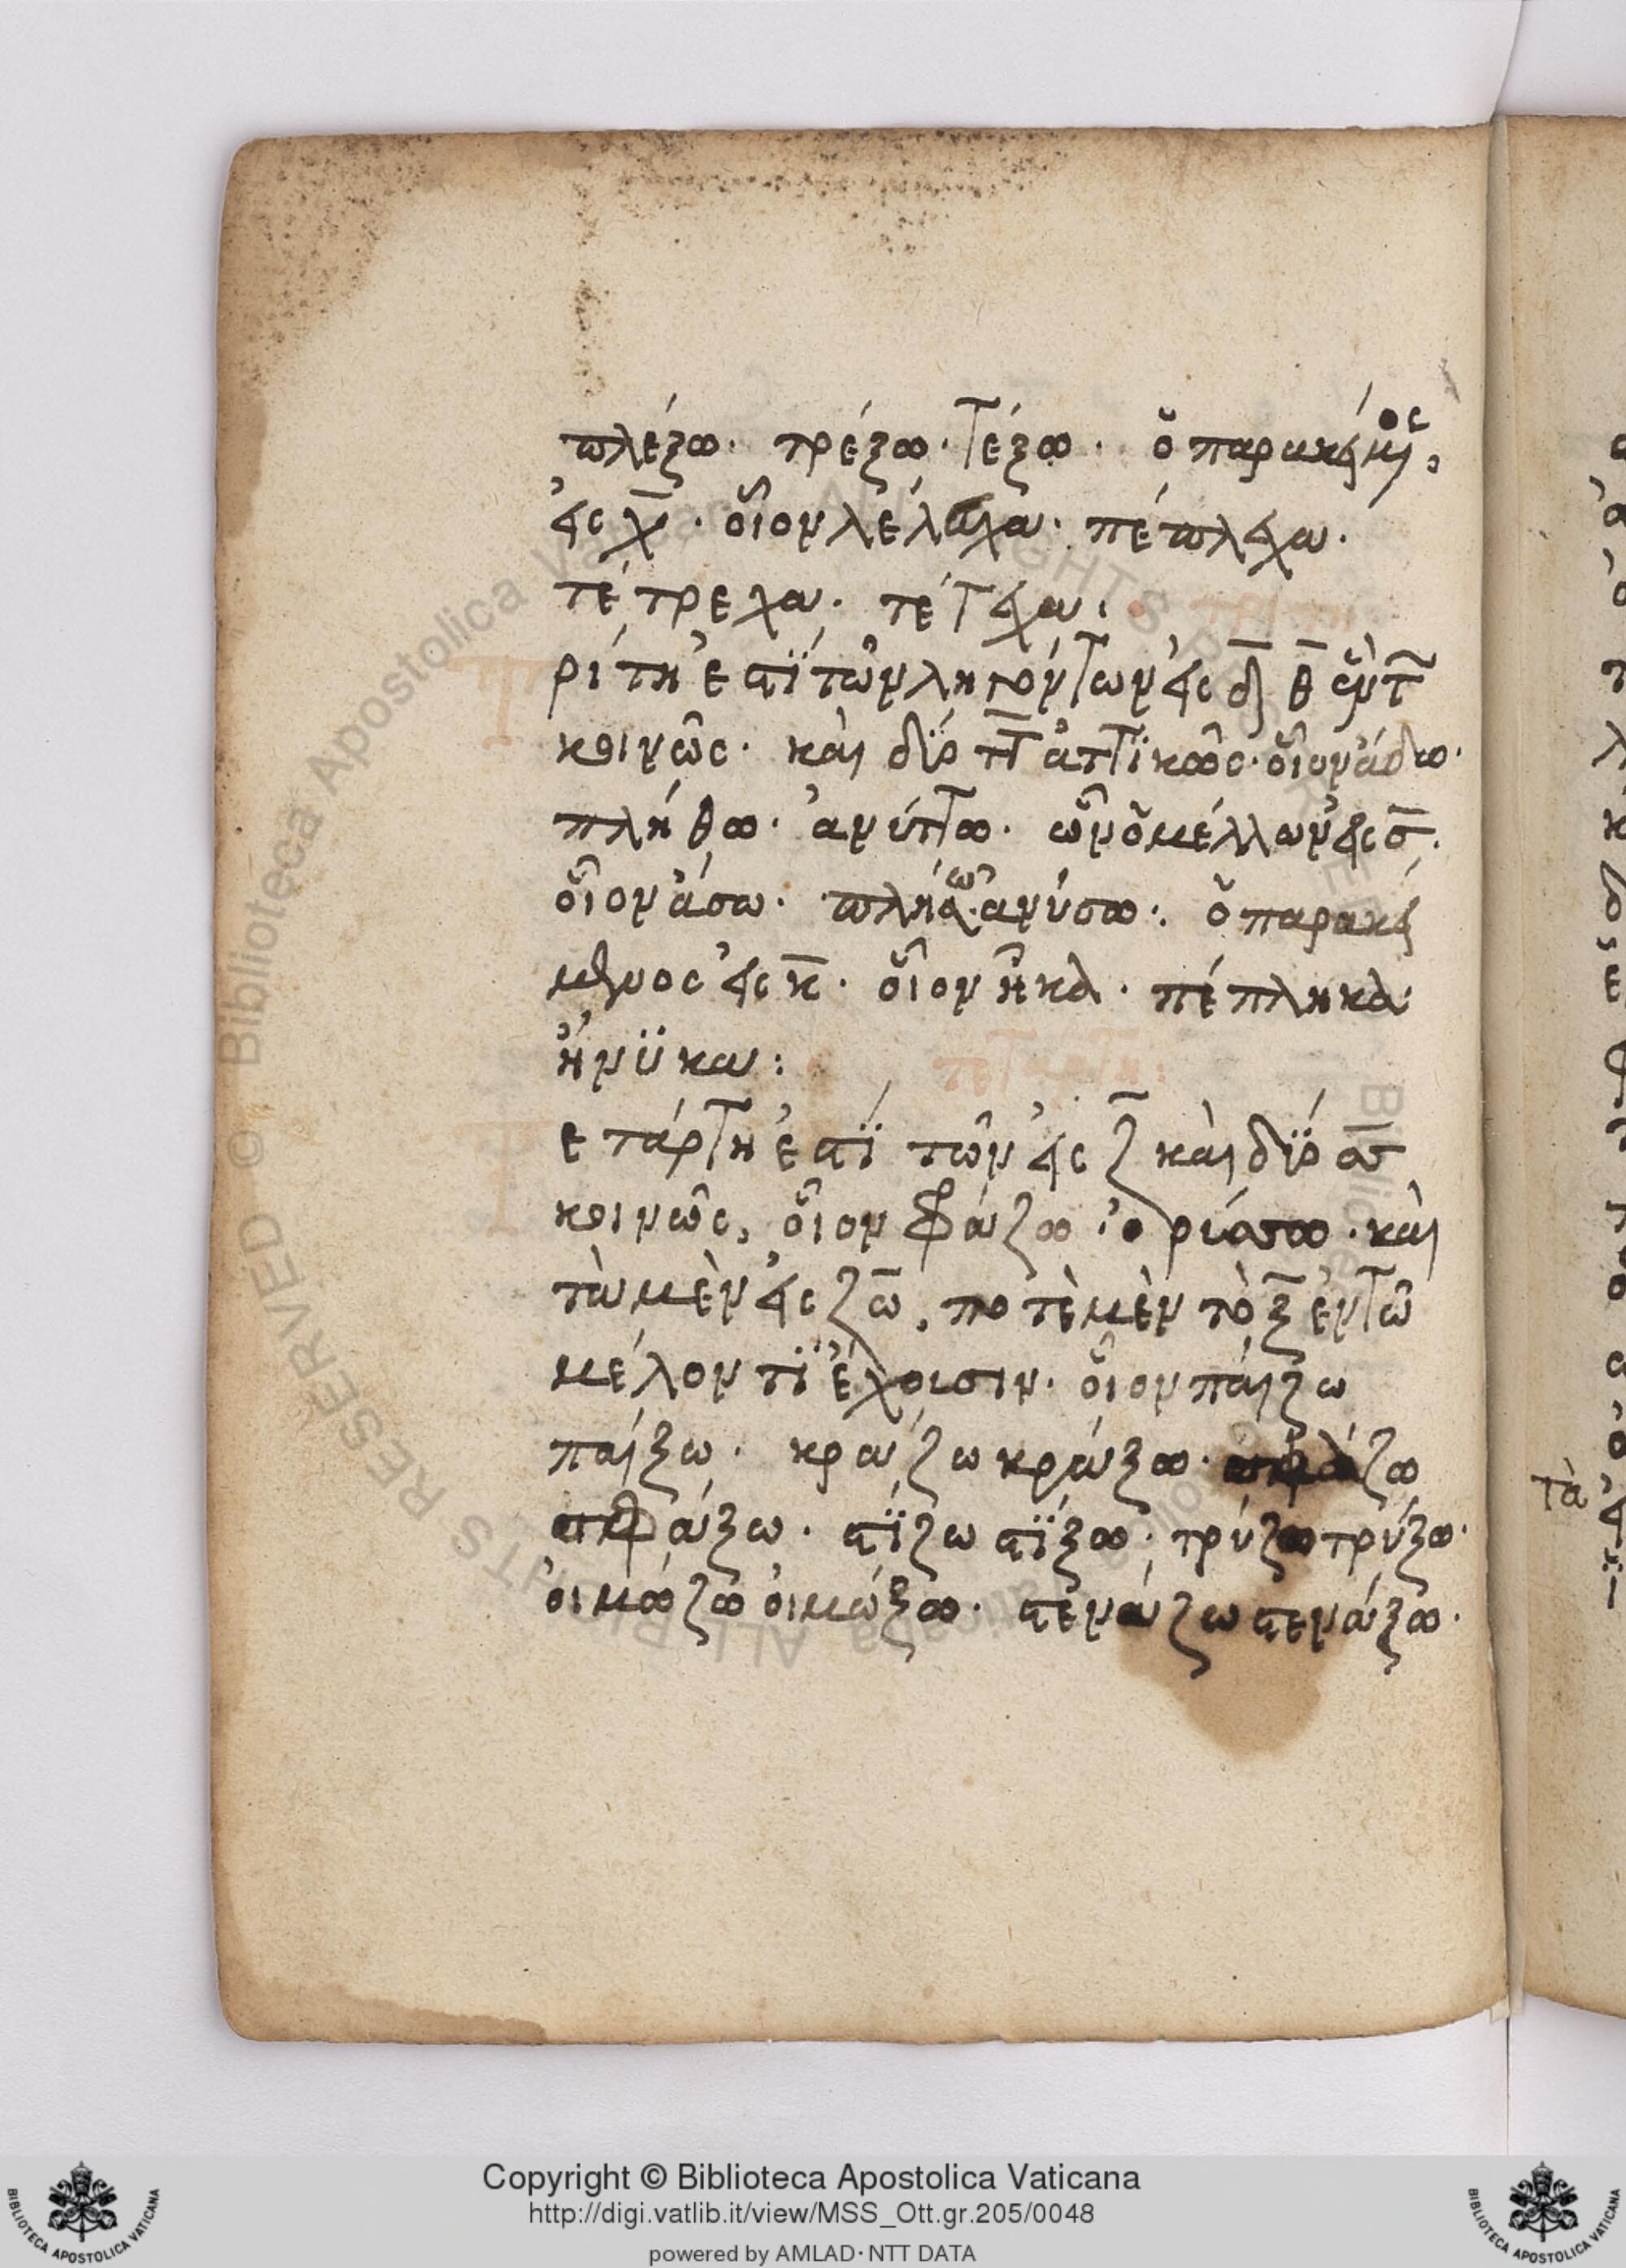 πλέξω. τρέξω. τέξω. ὁ παρακείμενος,
εἰς χ̄. οἷον λέλεχα. πέπλεχα.
τέτρεχα. τέτεχα:
ρίτη ἐστὶ τῶν ληγόντων εἰς δ̄ θ̄ ἢ τ̄
κοινῶς. καὶ δύο τ̄τ̄ ἀττικῶς. οἷον ἄδω.
πλήθω. ἀνύττω. ὧν ὁ μέλλων εἰς σ̄.
οἷον ἄσω. πλήσω. ἀνύσω. ὁ παρακεί
μενος εἰς κ̄. οἷον ἦκα. πέπληκα
ἤνϋκα:
ετάρτη ἐστὶ τῶν εἰς ζ̄ καὶ δύο σ̄σ̄
κοινῶς, οἷον φράζω. ὀρύσσω. καὶ
τὰ μὲν εἰς ζω̄, ποτὲ μὲν τὸ ξ̄ ἐν τῶ
μέλοντι ἔχουσιν. οἷον παίζω
παίξω. κράζω κράξω. σφάζω
σφάξω. στίζω στίξω. τρύζω τρύξω.
οἰμώζω οἰμώξω. στενάζω στενάξω.
τὰ
Copyright © Biblioteca Apostolica Vaticana
http://digi.vatlib.it/view/MSS_Ott.gr.205/0048
powered by AMLAD · NTT DATA
BIBLIOTECA APOSTOLICA VATICANA
BIBLIOTECA APOSTOLICA VATICANA